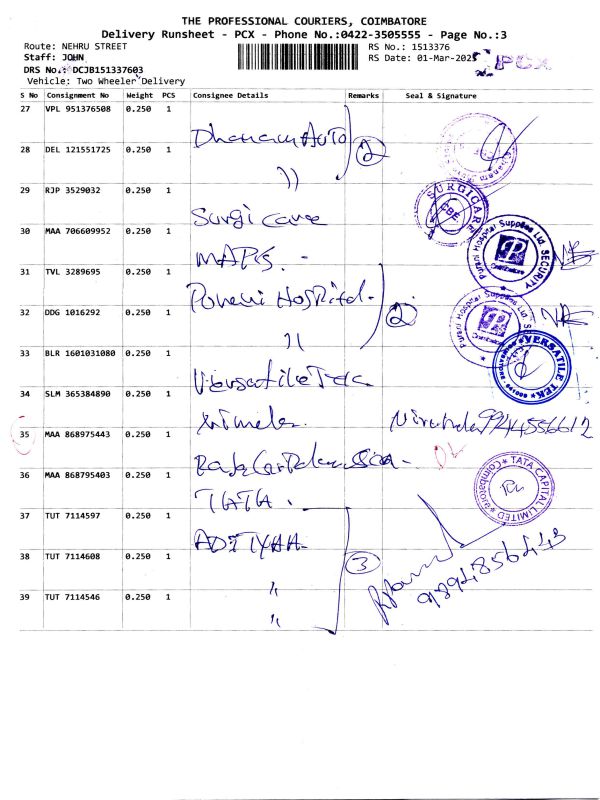 THE PROFESSIONAL COURIERS, COIMBATORE
Delivery Runsheet - PCX - Phone No.:0422-3505555 - Page No.:3
Route: NEHRU STREET
RS No.: 1513376
Staff: JOHN
RS Date: 01-Mar-2025
PCX
DRS No.: DCJB151337603
Vehicle: Two Wheeler Delivery
S No Consignment No Weight PCS Consignee Details Remarks Seal & Signature
27 VPL 951376508 0.250 1 Dhanam Auto
28 DEL 121551725 0.250 1 )) 2
29 RJP 3529032 0.250 1 Surgi care SURGICAR CBE
30 MAA 706609952 0.250 1 MAPS. Purani Hospital Supplies Ltd SECURITY Coimbatore
31 TVL 3289695 0.250 1 Hospital
32 DDG 1016292 0.250 1 )) 2 Purani Hospital Supplies Ltd Coimbatore
33 BLR 1601031080 0.250 1 Versatile Tek VERSATILE TEK
34 SLM 365384890 0.250 1 9244556612
35 MAA 868975443 0.250 1
36 MAA 868795403 0.250 1 TATA. TATA CAPITAL LIMITED Coimbatore
37 TUT 7114597 0.250 1 ADITYAA
38 TUT 7114608 0.250 1 " 3 9894856443
39 TUT 7114546 0.250 1 "